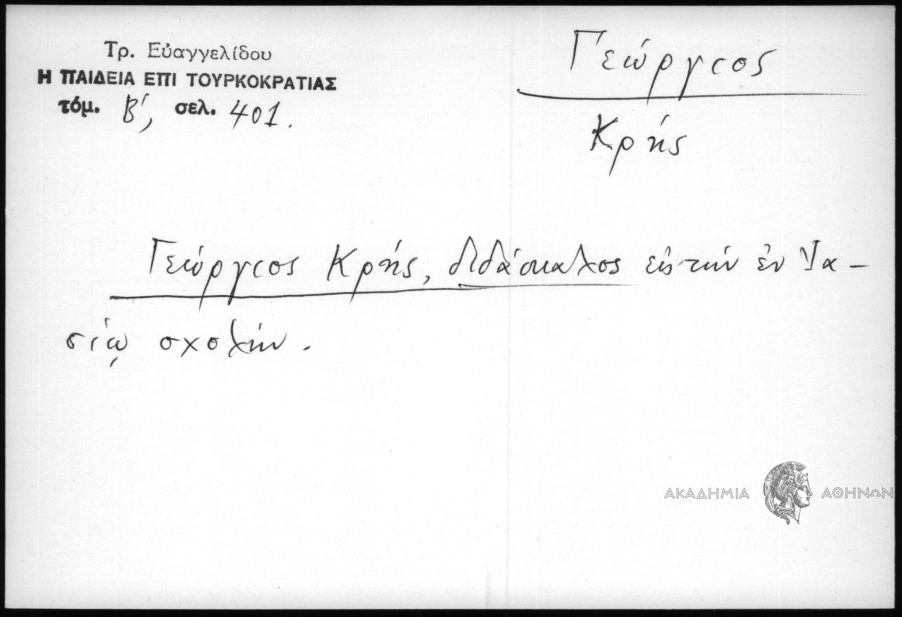 Τρ. Εὐαγγελίδου
Η ΠΑΙΔΕΙΑ ΕΠΙ ΤΟΥΡΚΟΚΡΑΤΙΑΣ
τόμ. Β΄, σελ. 401.
Γεώργιος
Κρής
Γεώργιος Κρής, διδάσκαλος εἰς τὴν ἐν Ἰα-
σίῳ σχολήν.
ΑΚΑΔΗΜΙΑ ΑΘΗΝΩΝ